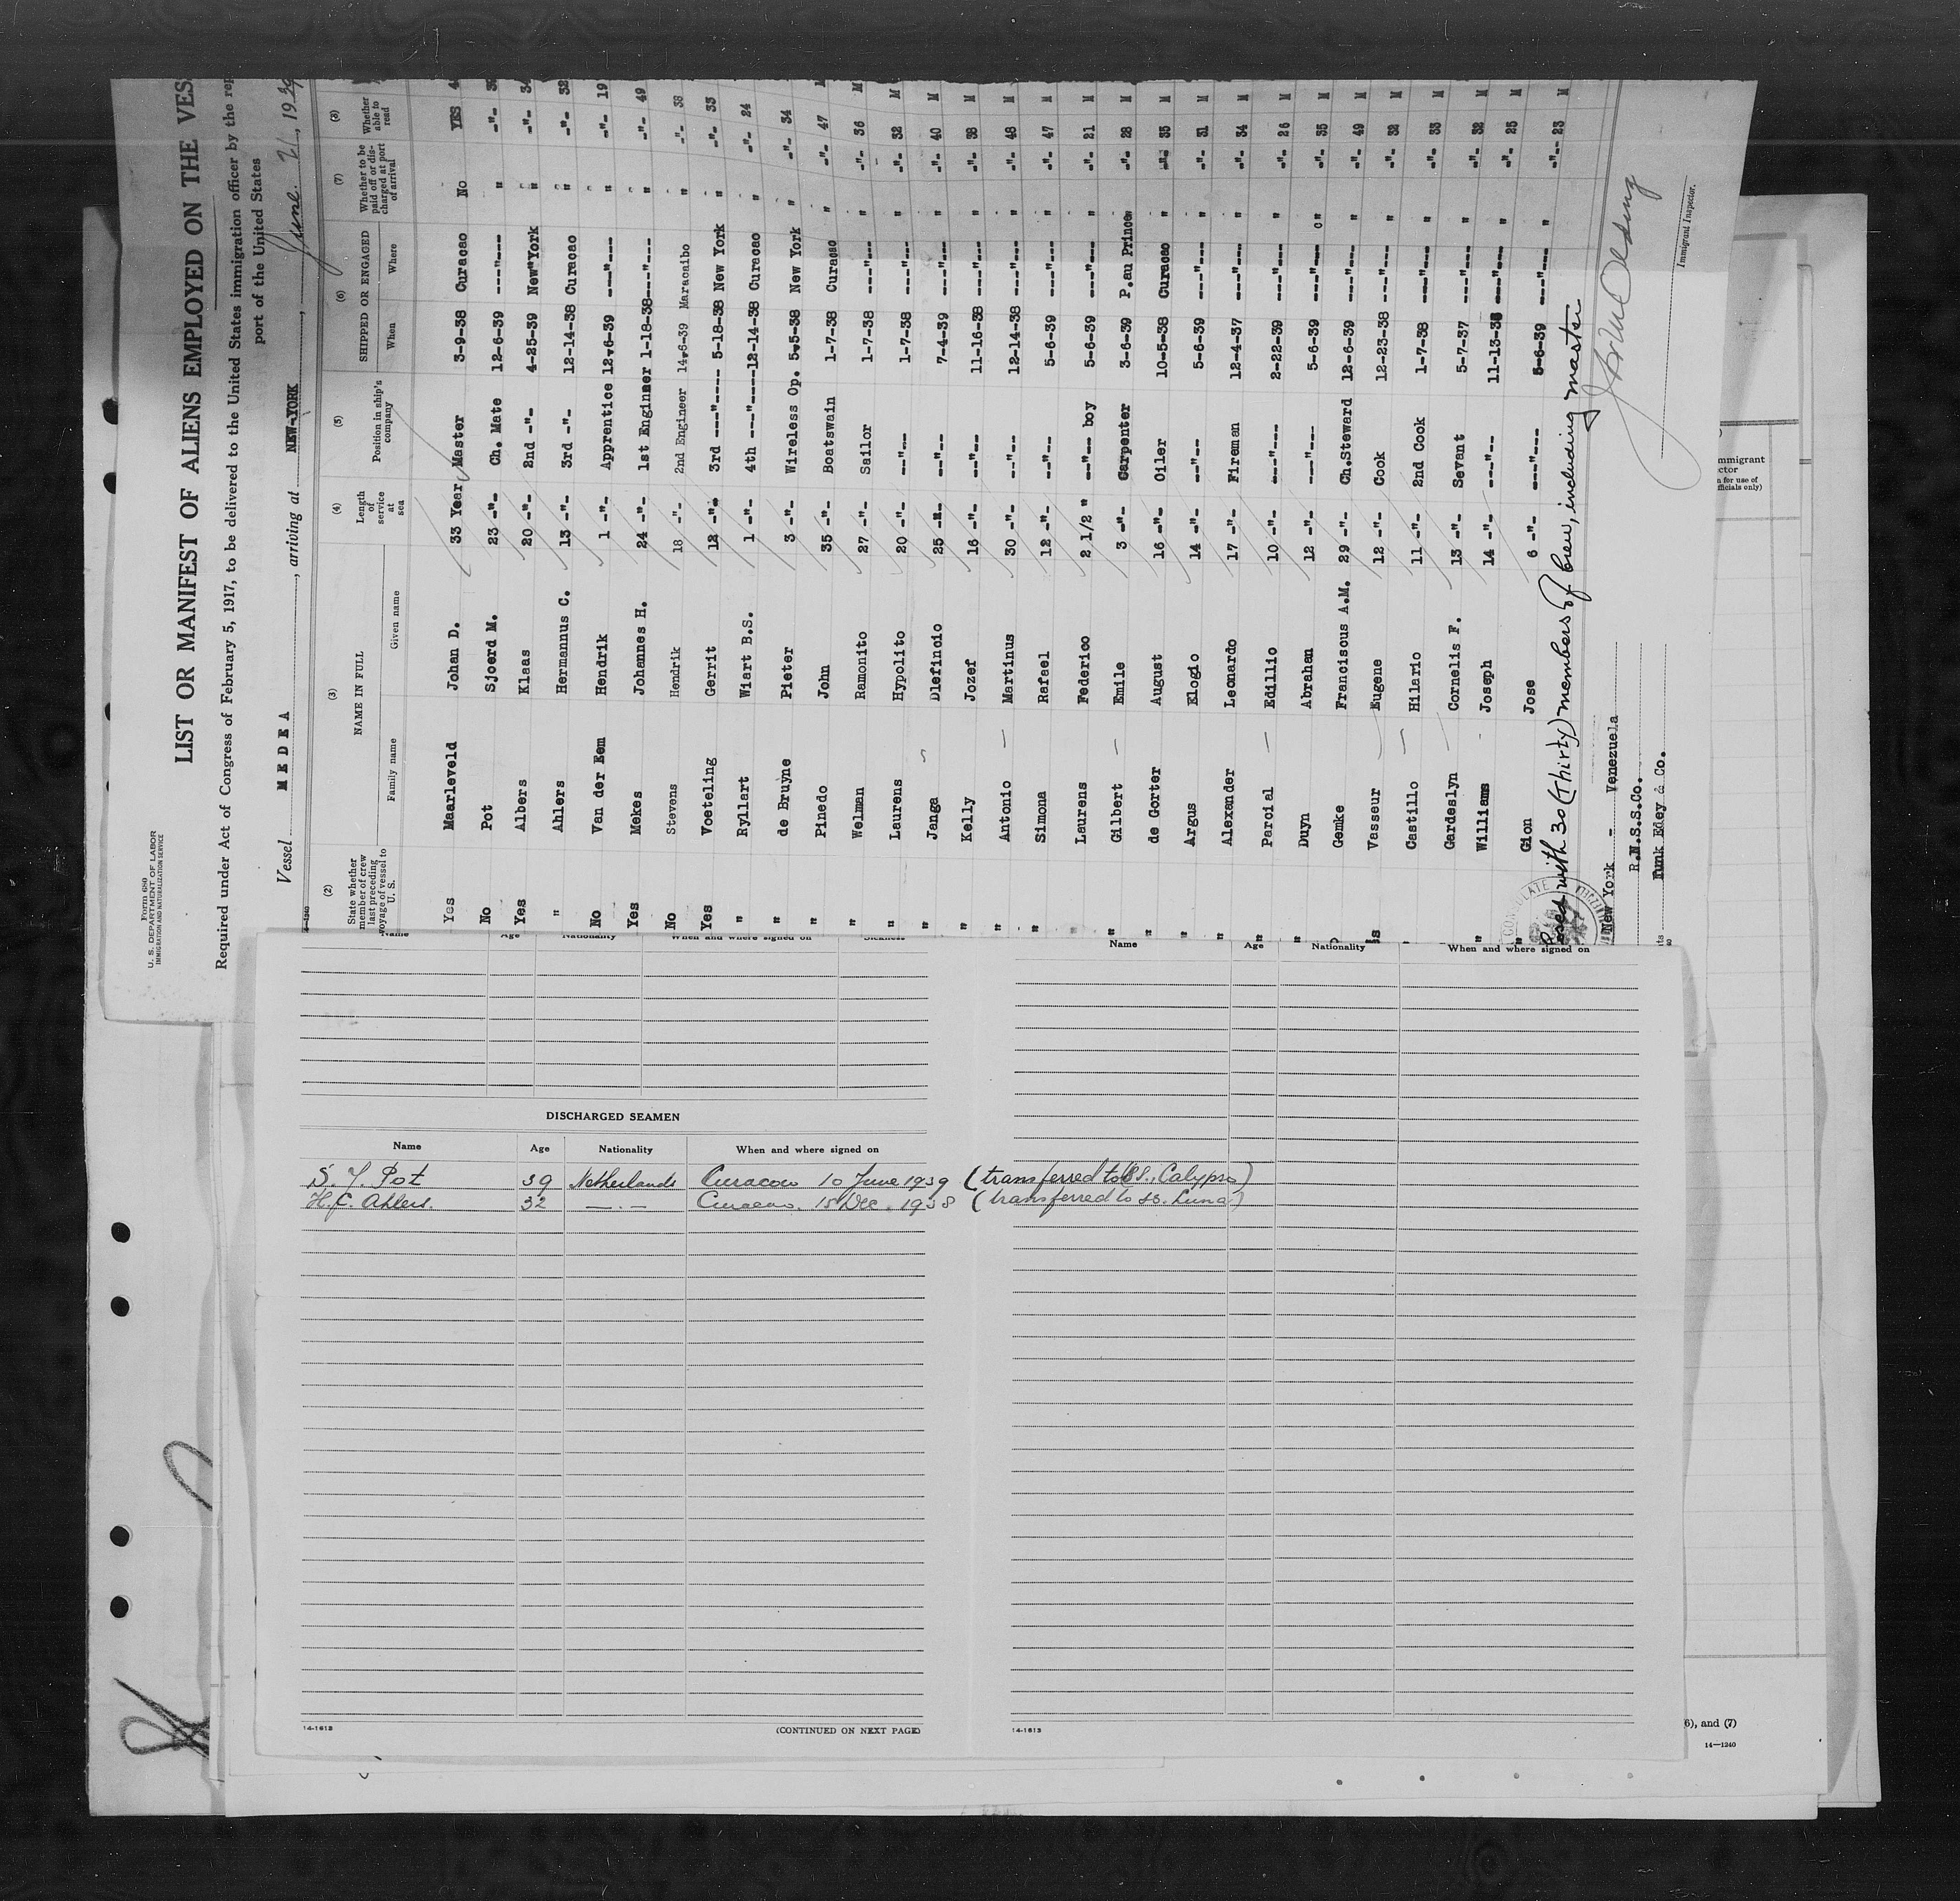 Form 680
U. S. DEPARTMENT OF LABOR
IMMIGRATION AND NATURALIZATION SERVICE
LIST OR MANIFEST OF ALIENS EMPLOYED ON THE VES
Required under Act of Congress of February 5, 1917, to be delivered to the United States immigration officer by the rep
port of the United States
Vessel MEDEA, arriving at NEW-YORK, June 21, 1939
(2) (3) (4) (5) (6) (7) (8)
State whether member of crew last preceding voyage of vessel to U. S. NAME IN FULL Family name Given name Length of service at sea Position in ship's company SHIPPED OR ENGAGED When Where Whether to be paid off or discharged at port of arrival Whether able to read
Yes Maarleveld Johan D. 33 Year Master 3-9-38 Curacao No YES
No Pot Sjoerd M. 23 -"- Ch. Mate 12-6-39 ----"---- " -"-
Yes Albers Klaas 20 -"- 2nd -"- 4-25-39 New York " -"-
" Ahlers Hermannus C. 13 -"- 3rd -"- 12-14-38 Curacao " -"- 32
No Van der Eem Hendrik 1 -"- Apprentice 12-6-39 ----"---- " -"- 19
Yes Mekes Johannes H. 24 -"- 1st Engineer 1-18-38 ----"---- " -"- 49
No Stevens Hendrik 18 -"- 2nd Engineer 14-6-39 Maracaibo " -"- 38
Yes Voeteling Gerrit 12 -"- 3rd ---"---- 5-18-38 New York " -"- 33
" Ryllart Wiart B.S. 1 -"- 4th ---"---- 12-14-38 Curacao " -"- 24
" de Bruyne Pieter 3 -"- Wireless Op. 5-5-38 New York " -"- 34
" Pinedo John 35 -"- Boatswain 1-7-38 Curacao " -"- 47
" Welman Ramonito 27 -"- Sailor 1-7-38 ----"---- " -"- 36 M
" Laurens Hypolito 20 -"- --"-- 1-7-38 ----"---- " -"- 32 M
" Janga Dlefincio 25 -"- --"-- 7-4-39 ----"---- " -"- 40 M
" Kelly Jozef 16 -"- ---"--- 11-16-38 ----"---- " -"- 38 M
" Antonio Martinus 30 -"- --"-- 12-14-38 ----"---- " -"- 48 M
" Simona Rafael 12 -"- ---"--- 5-6-39 ----"---- " -"- 47 M
" Laurens Federico 2 1/2 " ---"--- boy 5-6-39 ----"---- " -"- 21 M
" Gilbert Emile 3 -"- Carpenter 3-6-39 P.au Prince " -"- 28 M
" de Gorter August 16 -"- Oiler 10-5-38 Curacao " -"- 35 M
" Argus Elogio 14 -"- ---"--- 5-6-39 ----"---- " -"- 31 M
" Alexander Leonardo 17 -"- Fireman 12-4-37 ----"---- " -"- 34 M
" Parcial Edillio 10 -"- ----"--- 2-22-39 ----"---- " -"- 26 M
" Duyn Abrahan 12 -"- ----"--- 5-6-39 ----"---- " -"- 35 M
Gemke Franciscus A.M. 29 -"- Ch.Steward 12-6-39 ----"---- " -"- 49 M
Vasseur Eugene 12 -"- Cook 12-23-38 ----"---- " -"- 32 M
" Castillo Hilario 11 -"- 2nd Cook 1-7-38 ----"---- " -"- 33 M
Gardeslyn Cornelis F. 13 -"- Sevant 5-7-37 ----"---- " -"- 32 M
" Williams Joseph 14 -"- ---"--- 11-13-38 ----"---- " -"- 25 M
" Gion Jose 6 -"- ----"--- 5-6-39 ----"---- " -"- 23 M
with 30 (thirty) members of crew, including master
New York - Venezuela
R.N.S.S.Co.
Funk Edey & Co.
Immigrant Inspector.
Name Age Nationality When and where signed on Sickness
Name Age Nationality When and where signed on
DISCHARGED SEAMEN
Name Age Nationality When and where signed on
S. Y. Pot 39 Netherlands Curacao 10 June 1939 (transferred to SS. Calypso)
H.C. Ahlers. 32 —.— Curacao. 15 Dec. 1938 (transferred to ss. Luna)
14-1613
(CONTINUED ON NEXT PAGE)
14-1613
mmigrant
ctor
n for use of
fficials only)
6), and (7)
14—1240